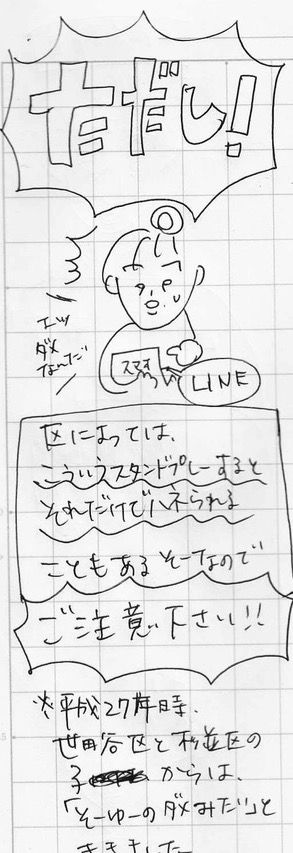 ただし!
エッ
ダメ
なんだ
スマホ
LINE
区によっては、
こういうスタンドプレーすると
それだけでハネられる
こともあるそーなので
ご注意下さい!!
※平成27年時、
世田谷区と杉並区の
子からは、
「そーゆーのダメみだい」と
ききました